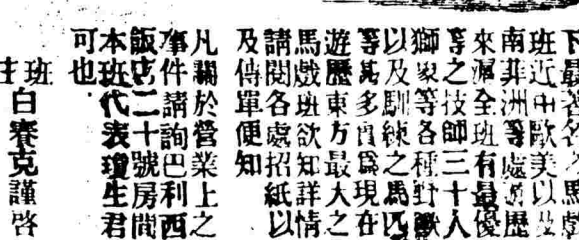 下最著名之馬戲
班近由歐美以及
南非洲等處游歷
來滬全班有最優
等之技師三十人
獅象等各種野獸
以及馴練之馬匹
等甚多實爲現在
遊歷東方最大之
馬戲班欲知詳情
請閱各處招紙以
及傳單便知
凡關於營業上之
事件請詢巴利西
飯店二十號房間
本班代表瓊生君
可也
班主白賽克謹啓